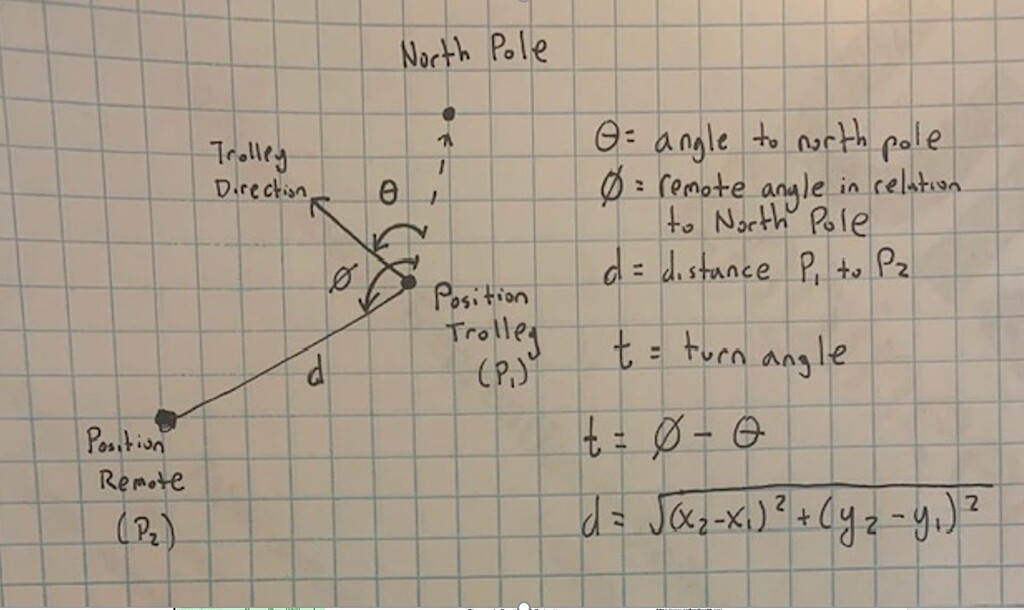 North Pole
Trolley
Direction
θ
Ø
d
Position
Trolley
(P₁)
Position
Remote
(P₂)
θ = angle to north pole
Ø = remote angle in relation
to North Pole
d = distance P₁ to P₂
t = turn angle
t = Ø - θ
d = √(x₂-x₁)² + (y₂-y₁)²